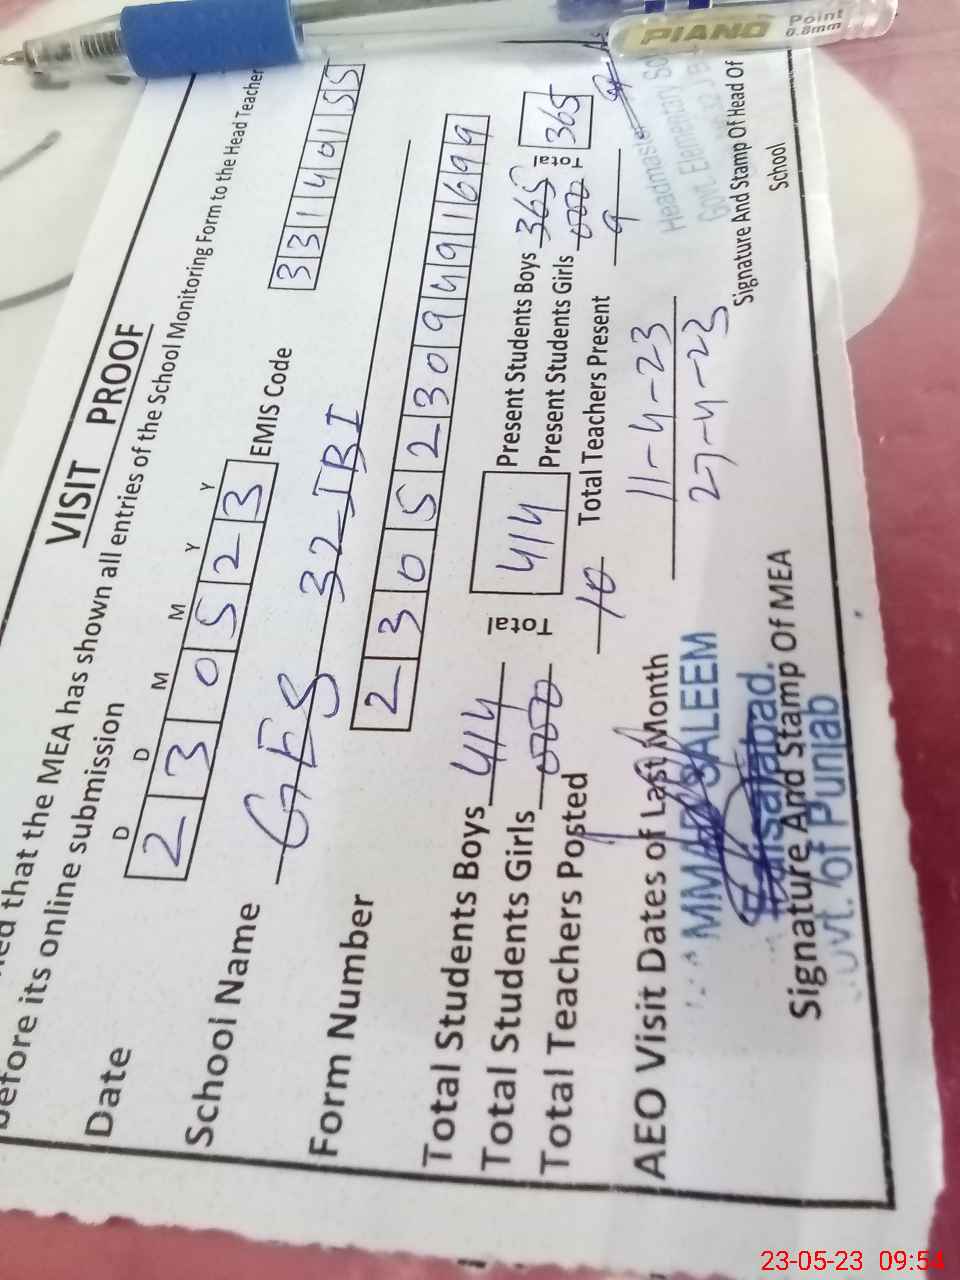 PIANO Point 0.8mm
VISIT PROOF
that the MEA has shown all entries of the School Monitoring Form to the Head Teacher
before its online submission
D D M M Y Y
Date 2 3 0 5 2 3 EMIS Code 3 3 1 4 0 1 5 5
School Name GES 32-JBI
Form Number 2 3 0 5 2 3 0 9 4 9 1 6 9 9
Total Students Boys 414 Total 414 Present Students Boys 365 Total 365
Total Students Girls 000 Present Students Girls 000
Total Teachers Posted 10 Total Teachers Present 9
AEO Visit Dates of Last Month 11-4-23
27-4-23
MMAR SALEEM
Headmaster
Govt. Elementary
Faisalabad.
Signature And Stamp Of MEA
Signature And Stamp Of Head Of School
Govt. of Punjab
23-05-23 09:54